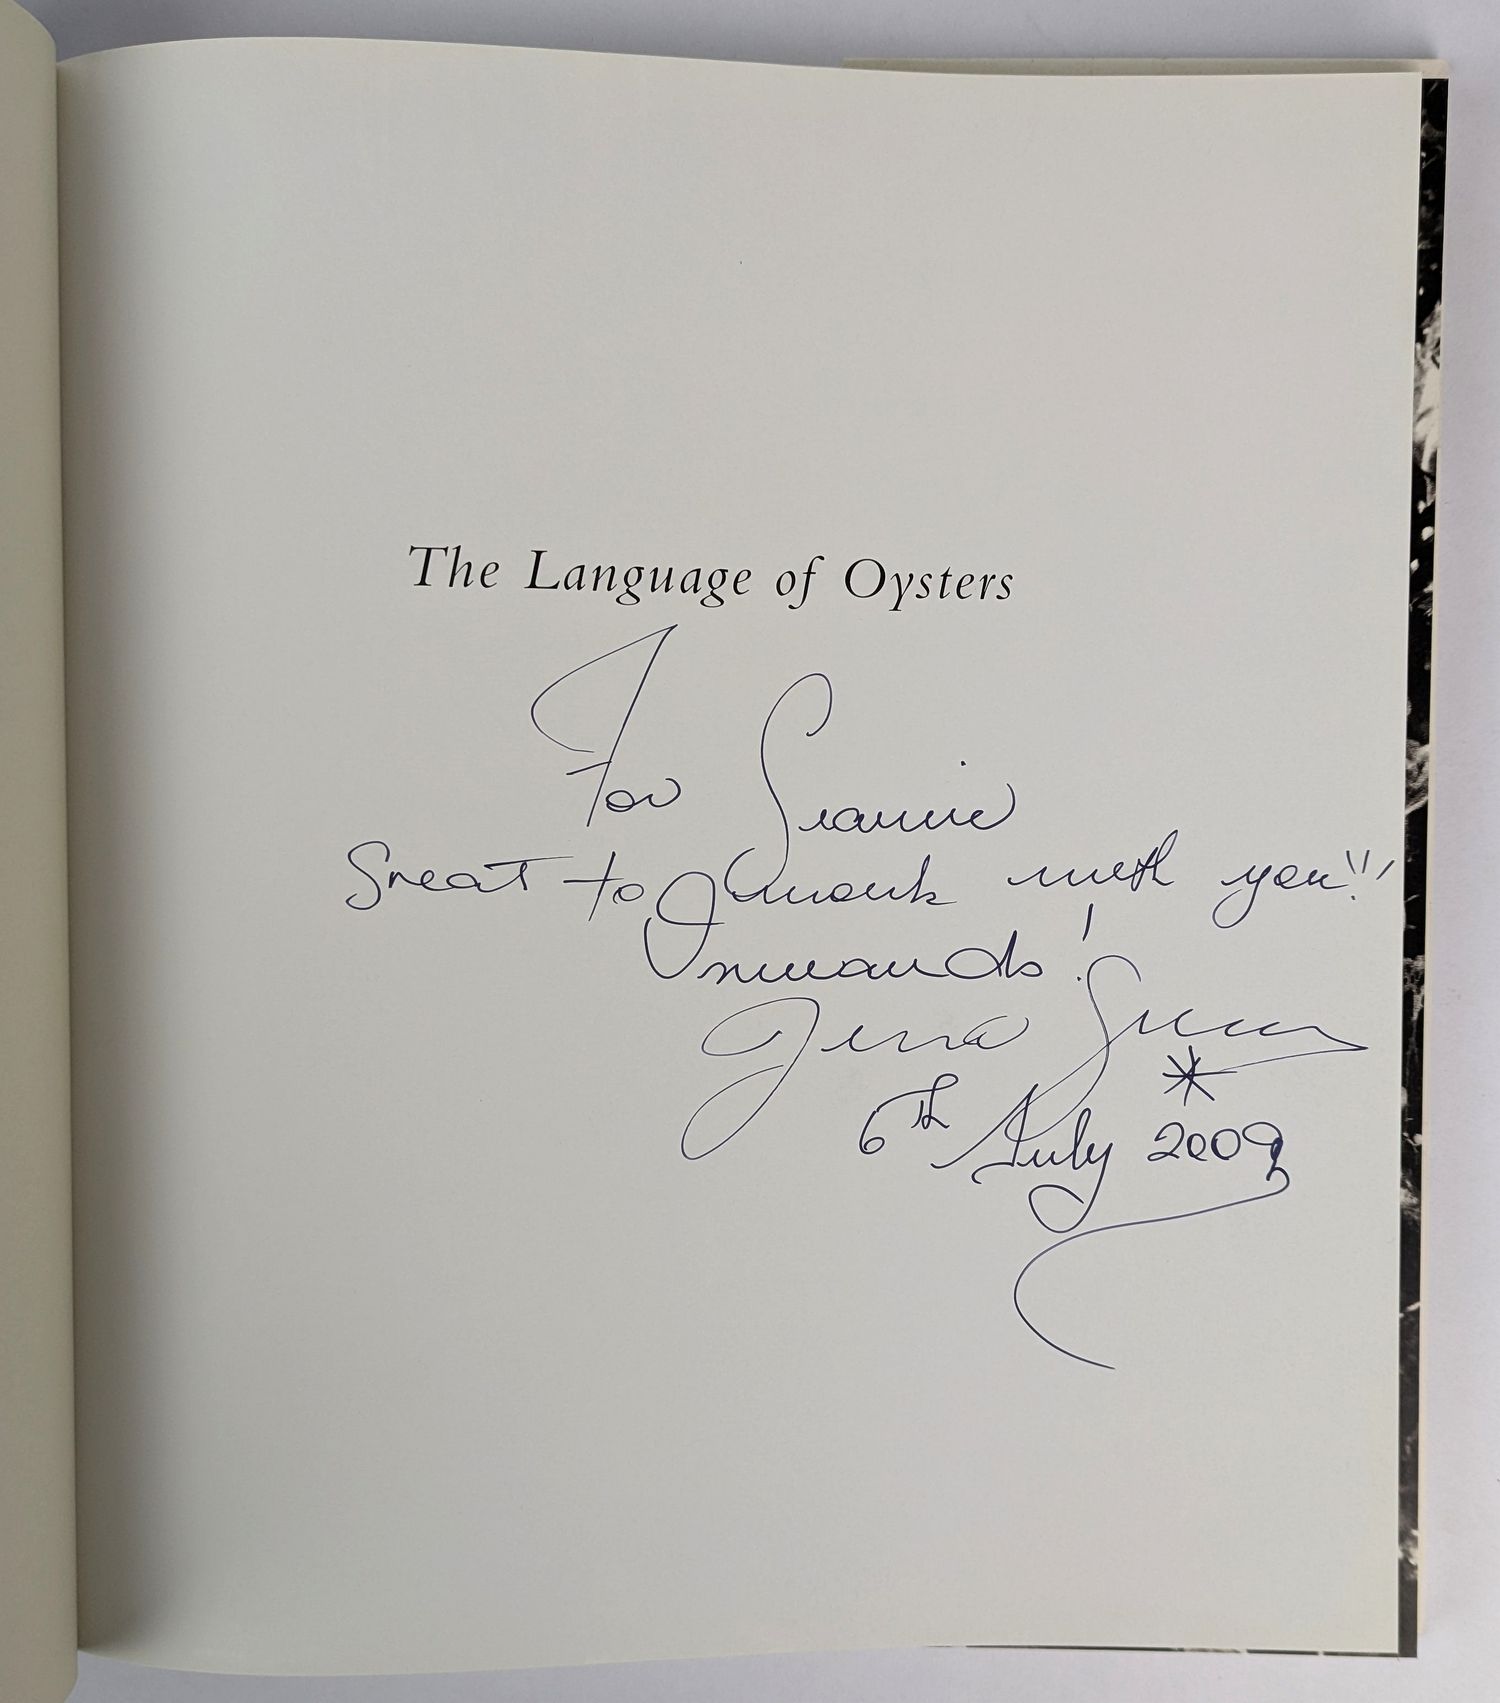 The Language of Oysters
For
Great to work with you!!
Onwards!
Juno Gemes
6th July 2009